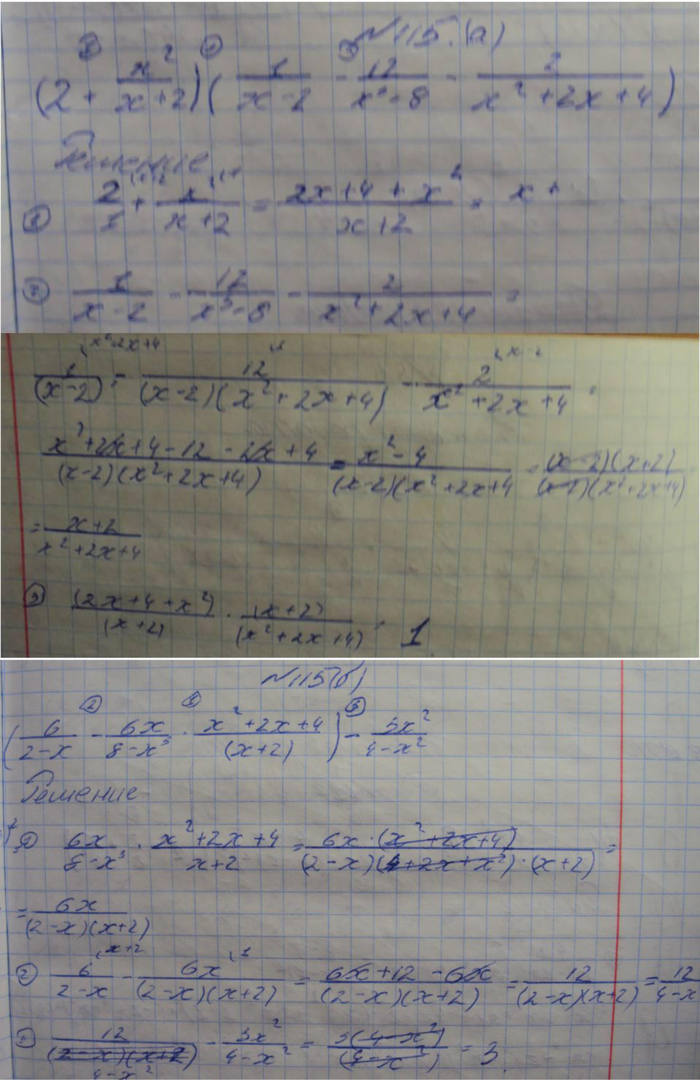 №115.(а)
(2 + x²/(x+2)) (1/(x-2) - 12/(x³-8) - 2/(x²+2x+4))
Решение
① 2/1 + x²/(x+2) = (2x+4+x²)/(x+2) = x +
② 1/(x-2) - 12/(x³-8) - 2/(x²+2x+4) =
1/(x-2) - 12/((x-2)(x²+2x+4)) - 2/(x²+2x+4) =
(x²+2x+4-12-2x+4)/((x-2)(x²+2x+4)) = (x²-4)/((x-2)(x²+2x+4) = ((x-2)(x+2))/((x-2)(x²+2x+4)) =
= (x+2)/(x²+2x+4)
③ (2x+4+x²)/(x+2) · (x+2)/(x²+2x+4) = 1
№115(б)
(6/(2-x) - 6x/(8-x³) · (x²+2x+4)/(x+2)) - 3x²/(4-x²)
Решение
① 6x/(8-x³) · (x²+2x+4)/(x+2) = (6x·(x²+2x+4))/((2-x)(4+2x+x²)·(x+2)) =
= 6x/((2-x)(x+2))
② 6/(2-x) - 6x/((2-x)(x+2)) = (6x+12-6x)/((2-x)(x+2)) = 12/((2-x)(x+2)) = 12/(4-x
12/((2-x)(x+2)) 4-x² - 3x²/(4-x²) = 3(4-x²)/(4-x²) = 3.